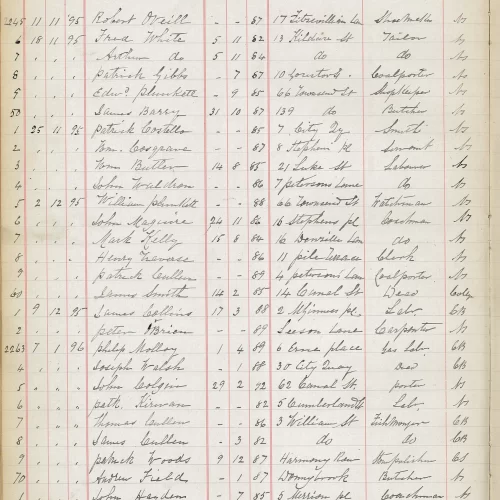 2245 11 11 '95 Robert O'Neill - - 87 17 Fitzwilliam Lan Shoemaker No
6 18 11 95 Fred White 5 11 82 13 Kildare St Tailor No
7 " " " Arthur do 5 11 84 do do No
8 " " " Patrick Gibbs - 7 87 10 Coalporter No
9 " " " Edwd. Plunkett - 9 85 66 Townsend St Shopkeeper No
50 " " " James Barry 31 10 87 139 do Butcher No
1 25 11 95 Patrick Costello " " 85 7 City Qy Smith No
2 " " " Wm. Cosgrave " " 87 8 Stephen pl No
3 " " " Wm Butler 14 8 85 21 Luke St Labourer No
4 " " " John Waldron " " 86 7 petersons Lane do No
5 2 12 95 William Plunkett " " 88 66 Townsend St Watchman No
6 " " " John Maguire 24 11 86 16 Stephens pl Coachman No
7 " " " Mark Kelly 15 8 84 16 Lan do No
8 " " " Henry " " 86 11 pile Terrace Clerk No
9 " " " patrick Cullen " " 89 4 petersons Lan Coalporter No
60 " " " James Smith 14 2 85 14 Canal St Dead
1 9 12 95 James Collins 17 3 88 2 pl Lab CB
2 " " " peter O'Brien " " 89 Leeson Lane Carpenter No
2263 7 1 96 philip Molloy 1 4 89 6 Erne place Gas lab CB
4 " " " Joseph Walsh - 1 88 30 City Quay Dead CB
5 " " " John Colgin 29 2 72 62 Canal St porter No
6 " " " path. Kirwan " " 82 5 Cumberland St Lab No
7 " " " Thomas Cullen " " 86 3 William St Fishmonger CB
8 " " " James Cullen - 3 82 do do CB
9 " " " patrick Woods 9 12 87 Harmony Row
70 " " " Andrew Field - 1 87 Donnybrook Butcher No
1 " " " John - 7 85 5 Merrion pl Coachman No